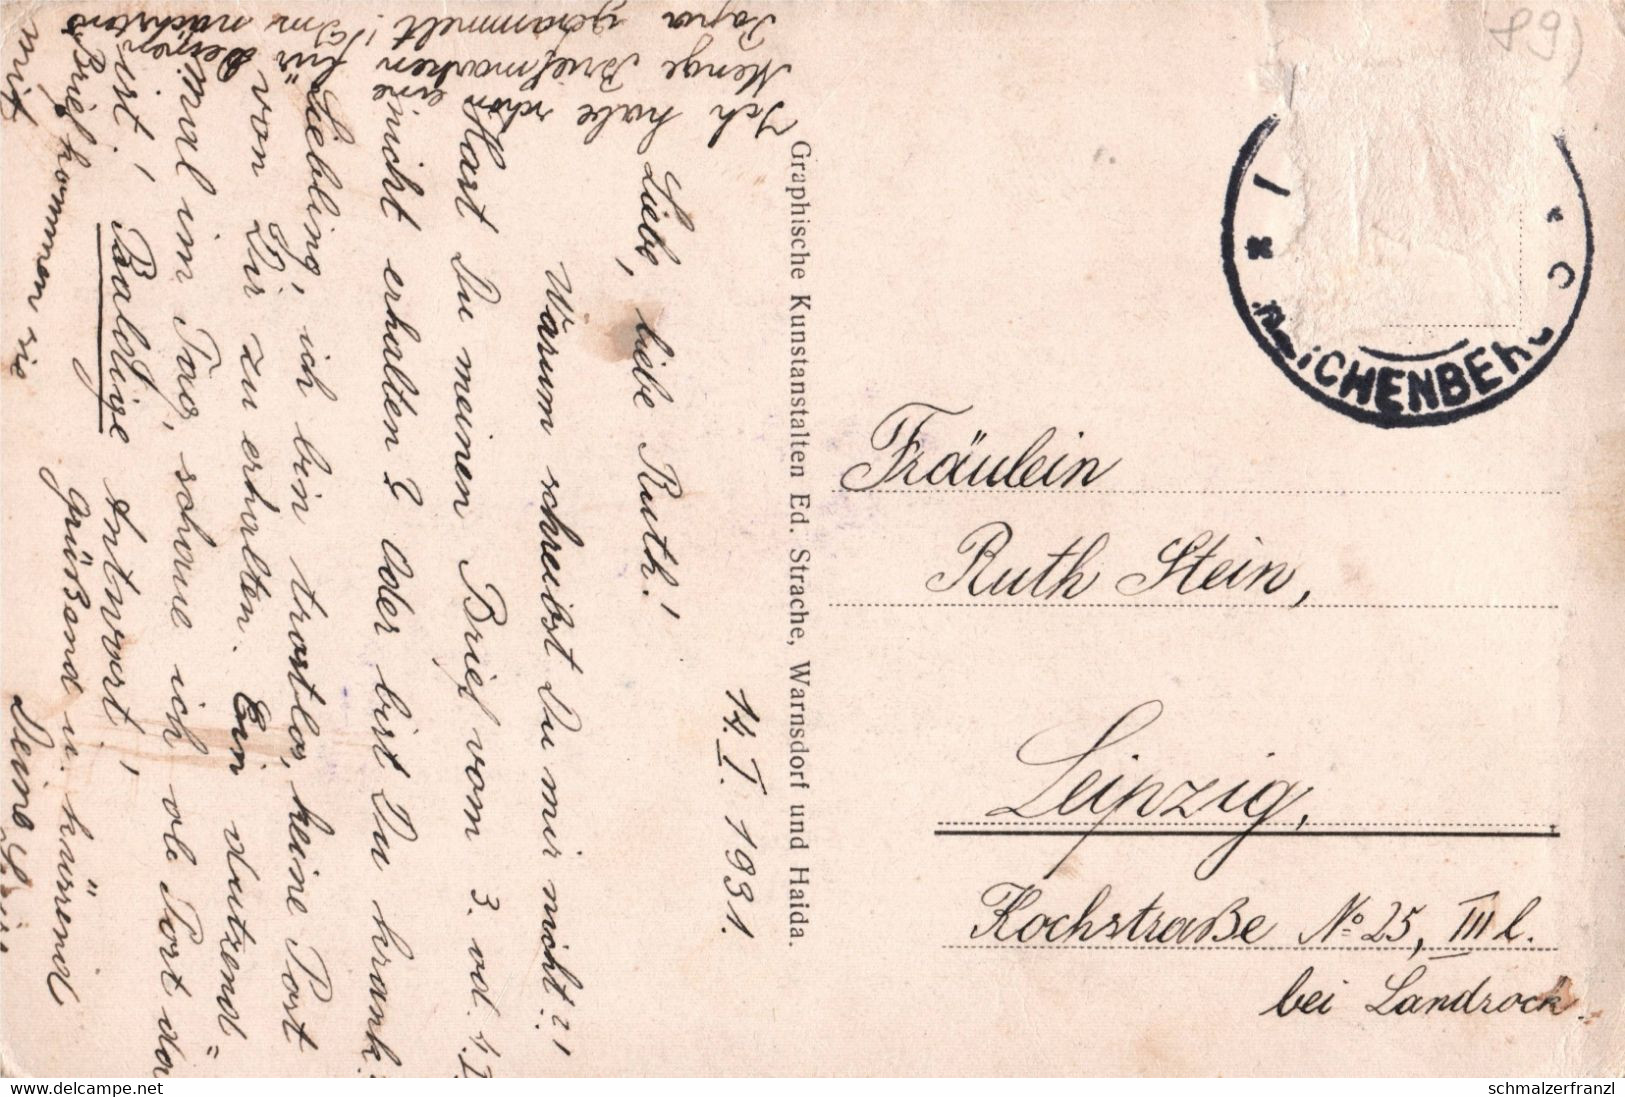 14. I. 1931.
Liebe, liebe Ruth!
Warum schreibst Du mir nicht?!
Hast Du meinen Brief vom 3. od. 4. I.
nicht erhalten? Oder bist Du krank?
Liebling, ich bin trostlos, keine Post
von Dir zu erhalten. Ein dutzend=
mal im Tag, schaue ich ob Post da
ist! Baldige Antwort!
grüßend u. küssend
Deine
Ich habe schon eine
Menge Briefmarken für Deinen
Papa gesammelt! Im nächsten
Brief kommen sie
mit
Graphische Kunstanstalten Ed. Strache, Warnsdorf und Haida.
89)
REICHENBERG
Fräulein
Ruth Stein,
Leipzig,
Kochstraße No 25, III l.
bei Landrock.
www.delcampe.net
schmalzerfranzl